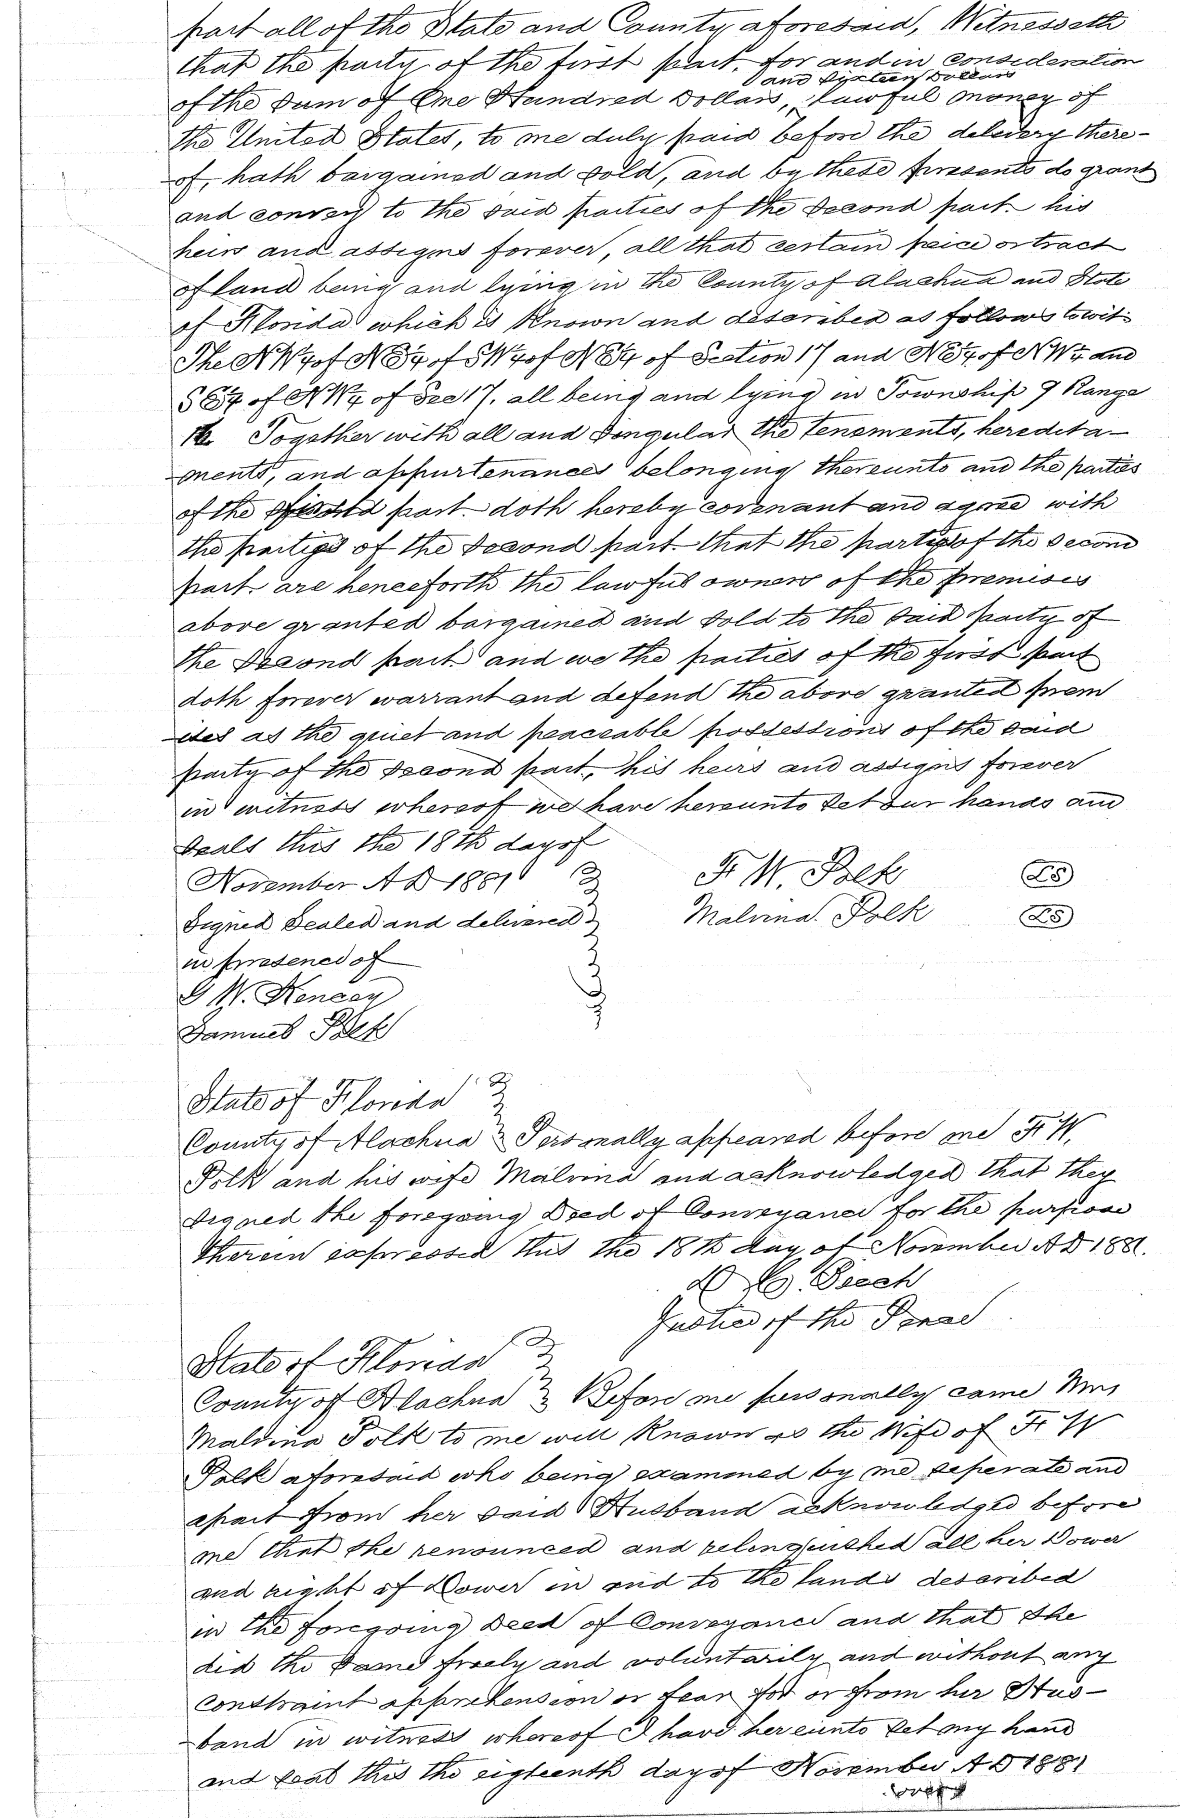 part all of the State and County aforesaid, Witnesseth
that the party of the first part, for and in consideration
and Sixteen Dollars
of the Sum of One Hundred Dollars, lawful money of
the United States, to me duly paid before the delivery there-
of, hath bargained and sold, and by these presents do grant
and convey to the said parties of the Second part his
heirs and assigns forever, all that certain peice or tract
of land being and lying in the County of Alachua and State
of Florida which is Known and described as follows towit:
The NW¼ of NE¼ of SW¼ of NE¼ of Section 17 and NE¼ of NW¼ and
SE¼ of NW¼ of Sec 17. all being and lying in Township 9 Range
Together with all and Singular the tenements, heredita-
ments, and appurtenances belonging thereunto and the parties
of the part doth hereby covenant and agree with
the parties of the Second part that the parties of the second
part are henceforth the lawful owners of the premises
above granted bargained and sold to the said party of
the Second part and we the parties of the first part
doth forever warrant and defend the above granted prem
ises as the quiet and peaceable possessions of the said
party of the second part, his heirs and assigns forever
in witness whereof we have hereunto set our hands and
seals this the 18th day of
November AD 1881
F. W. Polk LS
Signed Sealed and delivered
Malvina Polk LS
in presence of
G W.
Samuel Polk
State of Florida
County of Alachua Personally appeared before me F. W.
Polk and his wife Malvina and acKnowledged that they
signed the foregoing Deed of Conveyance for the purpose
therein expressed this the 18th day of November AD 1881.
Beach
Justice of the Peace
State of Florida
County of Alachua Before me personally came Mrs
Malvina Polk to me well Known as the Wife of F W
Polk aforesaid who being examined by me seperate and
apart from her said Husband acKnowledged before
me that she renounced and relinquished all her Dower
and right of Dower in and to the lands described
in the foregoing Deed of Conveyance and that she
did the same freely and voluntarily and without any
constraint apprehension or fear for or from her Hus-
band in witness whereof I have hereunto set my hand
and seal this the eigteenth day of November AD 1881